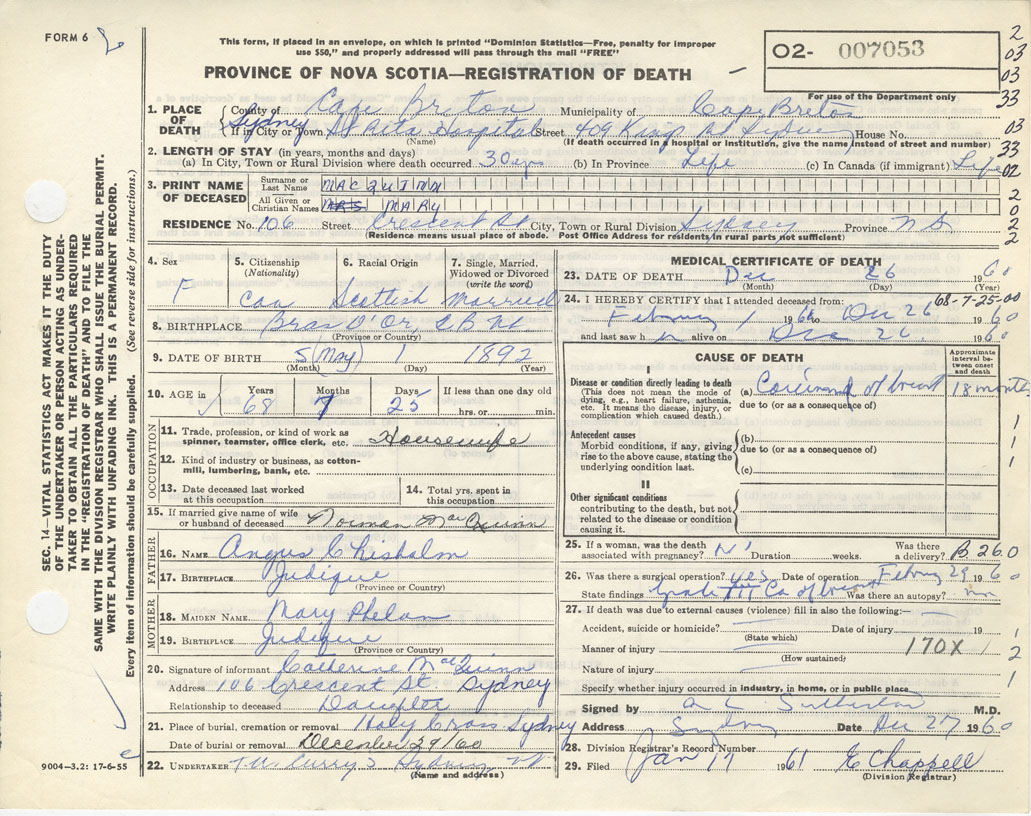 FORM 6
This form, if placed in an envelope, on which is printed "Dominion Statistics—Free, penalty for improper
use $50," and properly addressed will pass through the mail "FREE"
O2- 007053
PROVINCE OF NOVA SCOTIA—REGISTRATION OF DEATH
For use of the Department only
2
03
03
33
03
33
02
2
0
2
2
SEC. 14—VITAL STATISTICS ACT MAKES IT THE DUTY
OF THE UNDERTAKER OR PERSON ACTING AS UNDER-
TAKER TO OBTAIN ALL THE PARTICULARS REQUIRED
IN THE "REGISTRATION OF DEATH" AND TO FILE THE
SAME WITH THE DIVISION REGISTRAR WHO SHALL ISSUE THE BURIAL PERMIT.
WRITE PLAINLY WITH UNFADING INK. THIS IS A PERMANENT RECORD.
Every item of information should be carefully supplied. (See reverse side for instructions.)
1. PLACE OF DEATH County of Cape Breton Municipality of Cape Breton
Sydney If in City or Town St Rita Hospital Street 409 Kings Rd Sydney House No.
(Name) (If death occurred in a hospital or institution, give the name instead of street and number)
2. LENGTH OF STAY (in years, months and days)
(a) In City, Town or Rural Division where death occurred 30 yrs (b) In Province Life (c) In Canada (if immigrant) Life
3. PRINT NAME OF DECEASED Surname or Last Name MACQUINN
All Given or Christian Names MRS MARY
RESIDENCE No. 106 Street Crescent St City, Town or Rural Division Sydney Province N S
(Residence means usual place of abode. Post Office Address for residents in rural parts not sufficient)
4. Sex 5. Citizenship (Nationality) 6. Racial Origin 7. Single, Married, Widowed or Divorced (write the word)
F Can Scottish Married
8. BIRTHPLACE Bras D'Or, C B
(Province or Country)
9. DATE OF BIRTH 5 (May) 1 1892
(Month) (Day) (Year)
10. AGE in Years Months Days If less than one day old
68 7 25 hrs. or min.
OCCUPATION
11. Trade, profession, or kind of work as spinner, teamster, office clerk, etc. Housewife
12. Kind of industry or business, as cotton-mill, lumbering, bank, etc.
13. Date deceased last worked at this occupation
14. Total yrs. spent in this occupation
15. If married give name of wife or husband of deceased Norman MacQuinn
FATHER
16. NAME Angus Chisholm
17. BIRTHPLACE Judique
(Province or Country)
MOTHER
18. MAIDEN NAME Mary Phelan
19. BIRTHPLACE Judique
(Province or Country)
20. Signature of informant Catherine MacQuinn
Address 106 Crescent St Sydney
Relationship to deceased Daughter
21. Place of burial, cremation or removal Holy Cross Sydney
Date of burial or removal December 29/60
22. UNDERTAKER T.W. Curry's Sydney
(Name and address)
9004—3.2: 17-6-55
MEDICAL CERTIFICATE OF DEATH
23. DATE OF DEATH Dec 26 1960
(Month) (Day) (Year)
24. I HEREBY CERTIFY that I attended deceased from: 68-7-25-00
February 1 1960 to Dec 26 1960
and last saw h alive on Dec 26 1960
CAUSE OF DEATH
Approximate interval between onset and death
I
Disease or condition directly leading to death
(This does not mean the mode of dying, e.g., heart failure, asthenia, etc. It means the disease, injury, or complication which caused death.)
(a) Carcinoma of breast 18 months
due to (or as a consequence of)
Antecedent causes
Morbid conditions, if any, giving rise to the above cause, stating the underlying condition last.
(b)
due to (or as a consequence of)
(c)
1
1
1
II
Other significant conditions
contributing to the death, but not related to the disease or condition causing it.
25. If a woman, was the death associated with pregnancy? No Duration weeks. Was there a delivery? B.260
26. Was there a surgical operation? yes Date of operation February 29 1960
State findings Grade III Ca of breast Was there an autopsy? no
27. If death was due to external causes (violence) fill in also the following:—
Accident, suicide or homicide? Date of injury 19 1
(State which)
Manner of injury 170X 1 2
(How sustained)
Nature of injury 1
Specify whether injury occurred in industry, in home, or in public place
Signed by M.D.
Address Sydney Date Dec 27 1960
28. Division Registrar's Record Number
29. Filed Jan 17 1961 E Chappell
(Division Registrar)